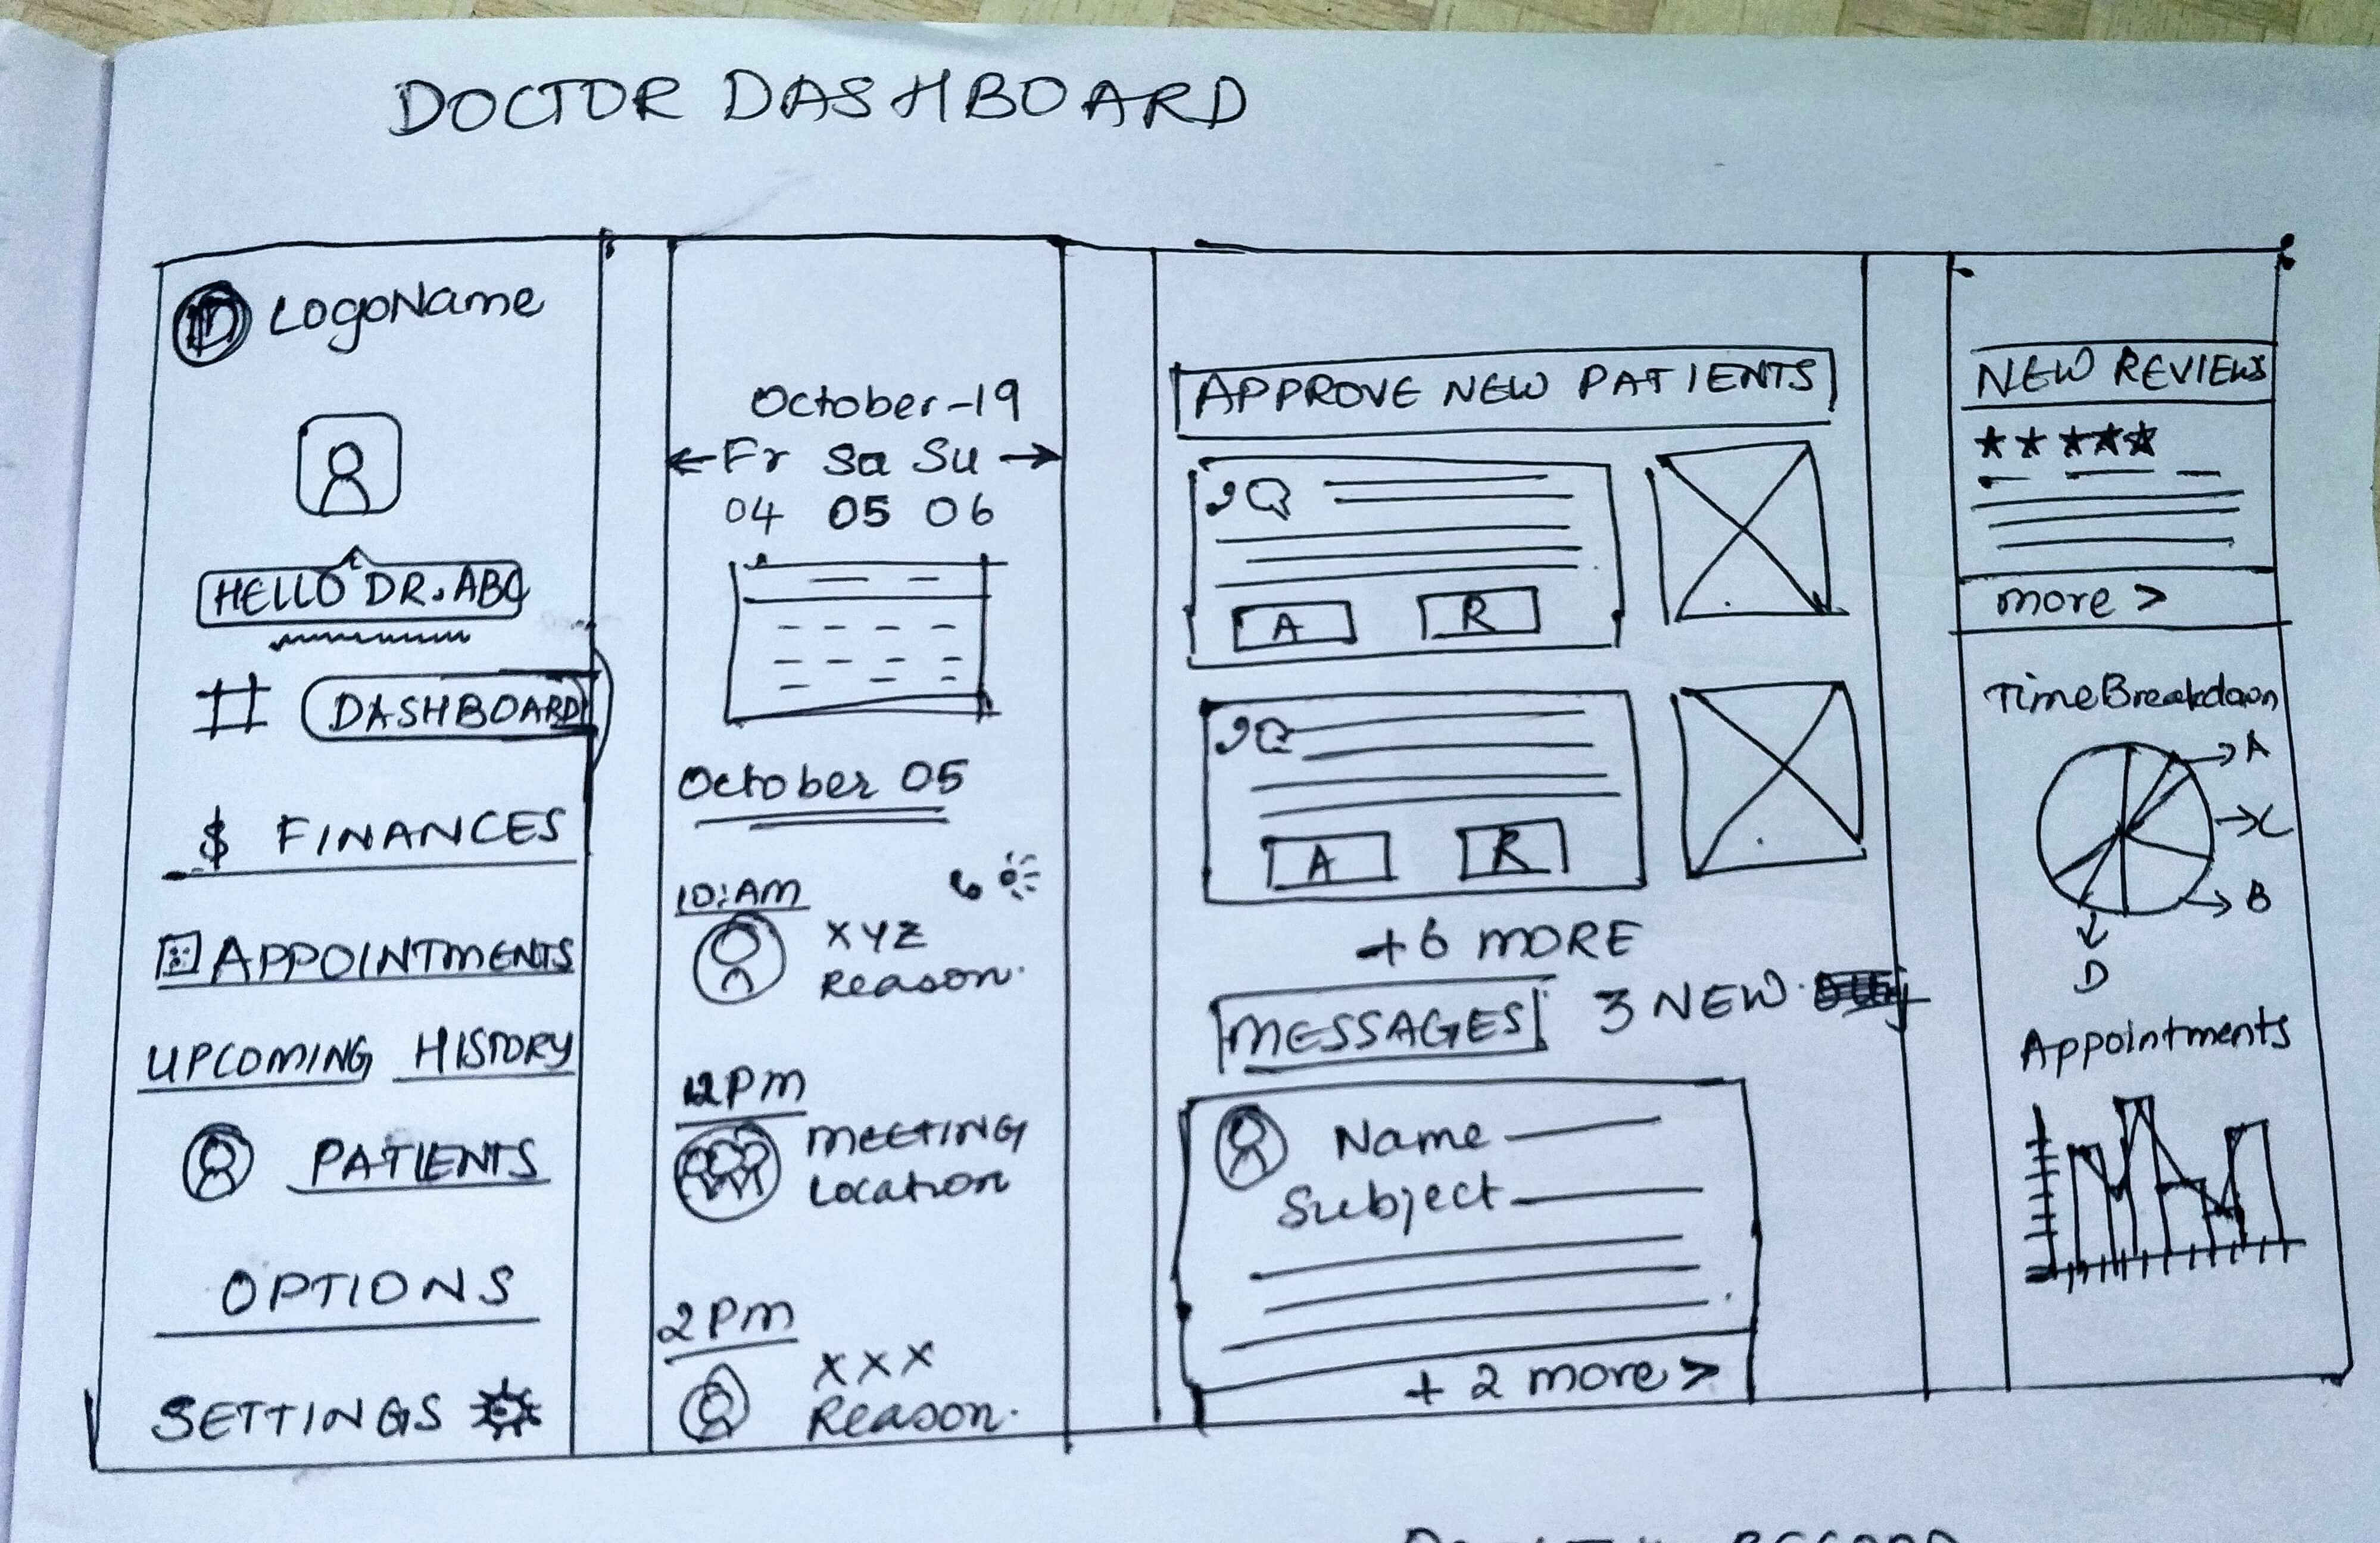 DOCTOR DASHBOARD
LogoName
HELLO DR. ABC
DASHBOARD
$ FINANCES
APPOINTMENTS
UPCOMING HISTORY
PATIENTS
OPTIONS
SETTINGS
October-19
Fr Sa Su
04 05 06
October 05
10:AM
XYZ
Reason.
12PM
MEETING
Location
2PM
XXX
Reason.
APPROVE NEW PATIENTS
A R
A R
+6 MORE
MESSAGES 3 NEW.
Name
Subject
+ 2 more >
NEW REVIEWS
more >
TimeBreakdown
A
C
B
D
Appointments
RECORD